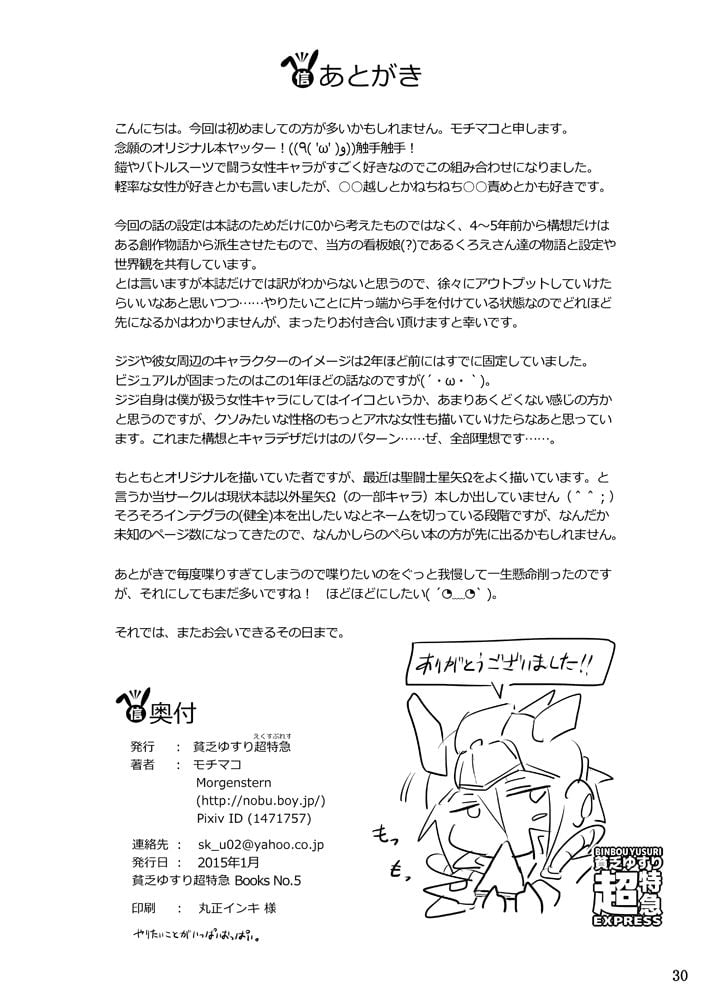 信あとがき
こんにちは。今回は初めましての方が多いかもしれません。モチマコと申します。
念願のオリジナル本ヤッター！((٩( 'ω' )و))触手触手！
鎧やバトルスーツで闘う女性キャラがすごく好きなのでこの組み合わせになりました。
軽率な女性が好きとかも言いましたが、○○越しとかねちねち○○責めとかも好きです。
今回の話の設定は本誌のためだけに0から考えたものではなく、4～5年前から構想だけは
ある創作物語から派生させたもので、当方の看板娘(?)であるくろえさん達の物語と設定や
世界観を共有しています。
とは言いますが本誌だけでは訳がわからないと思うので、徐々にアウトプットしていけた
らいいなあと思いつつ……やりたいことに片っ端から手を付けている状態なのでどれほど
先になるかはわかりませんが、まったりお付き合い頂けますと幸いです。
ジジや彼女周辺のキャラクターのイメージは2年ほど前にはすでに固定していました。
ビジュアルが固まったのはこの1年ほどの話なのですが(´・ω・｀)。
ジジ自身は僕が扱う女性キャラにしてはイイコというか、あまりあくどくない感じの方か
と思うのですが、クソみたいな性格のもっとアホな女性も描いていけたらなあと思ってい
ます。これまた構想とキャラデザだけはのパターン……ぜ、全部理想です……。
もともとオリジナルを描いていた者ですが、最近は聖闘士星矢Ωをよく描いています。と
言うか当サークルは現状本誌以外星矢Ω（の一部キャラ）本しか出していません（＾＾；）
そろそろインテグラの(健全)本を出したいなとネームを切っている段階ですが、なんだか
未知のページ数になってきたので、なんかしらのぺらい本の方が先に出るかもしれません。
あとがきで毎度喋りすぎてしまうので喋りたいのをぐっと我慢して一生懸命削ったのです
が、それにしてもまだ多いですね！　ほどほどにしたい( ´◔‿◔` )。
それでは、またお会いできるその日まで。
ありがとうございました!!
信奥付
えくすぷれす
発行　：　貧乏ゆすり超特急
著者　：　モチマコ
Morgenstern
(http://nobu.boy.jp/)
Pixiv ID (1471757)
連絡先　：　sk_u02@yahoo.co.jp
発行日　：　2015年1月
貧乏ゆすり超特急 Books No.5
印刷　：　丸正インキ 様
やりたいことがいっぱいおっぱい。
もっ
もっ
BINBOU YUSURI
貧乏ゆすり
超特急
EXPRESS
30